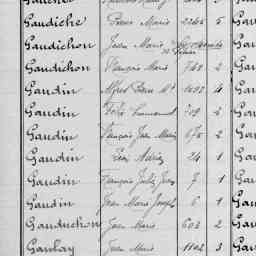 Gaudiche Pierre Marie 2265 5 Gaud
Gaudichon Jean Marie Gaud
Gaudichon François Marie 742 2 Gaud
Gaudin Alfred Pierre Mie 1092 4 Gaud
Gaudin Félix Emmanuel 709 2 Gaud
Gaudin François Jean Marie 675 2 Gaud
Gaudin René Adrien 24 1 Gaud
Gaudin François Julien Jean 7 1 Gaud
Gaudin Jean Marie Joseph 6 1 Gaud
Gauduchon Jean Marie 603 2 Gaud
Gauhay Jean Marie 1102 3 Gaud